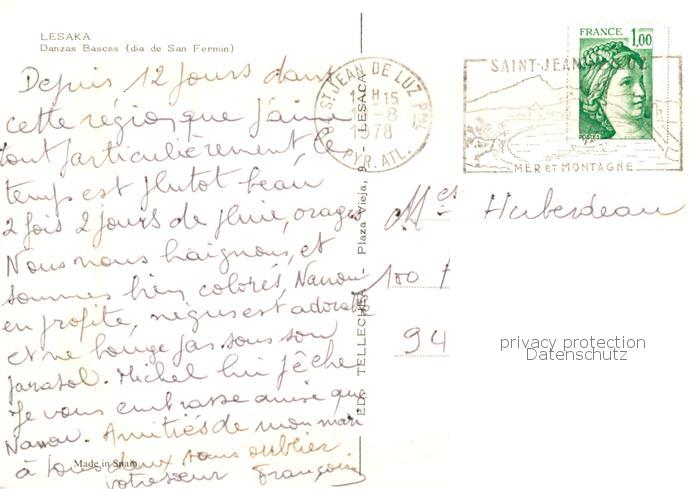 LESAKA
Danzas Bascas (dia de San Fermin)
Depuis 12 jours dans
cette région que j'aime
tout particulièrement, le
temps est plutot beau
2 fois 2 jours de pluie, orages
Nous nous baignons, et
sommes bien colorés, Nanou
en profite, négus est adorable
et ne bouge pas sous son
parasol. Michel lui pêche
Je vous embrasse ainsi que
Nanou. Amitiés de mon mari
à tous deux sans oublier
votre sœur Françoise
Made in Spain
ED. TELLECHEA Plaza Vieja, 9 - LESACA
ST JEAN DE LUZ PPL
H 15
-8
1978
PYR. ATL.
SAINT-JEAN
MER ET MONTAGNE
FRANCE
1,00
POSTES
Huberdeau
100
94
privacy protection
Datenschutz